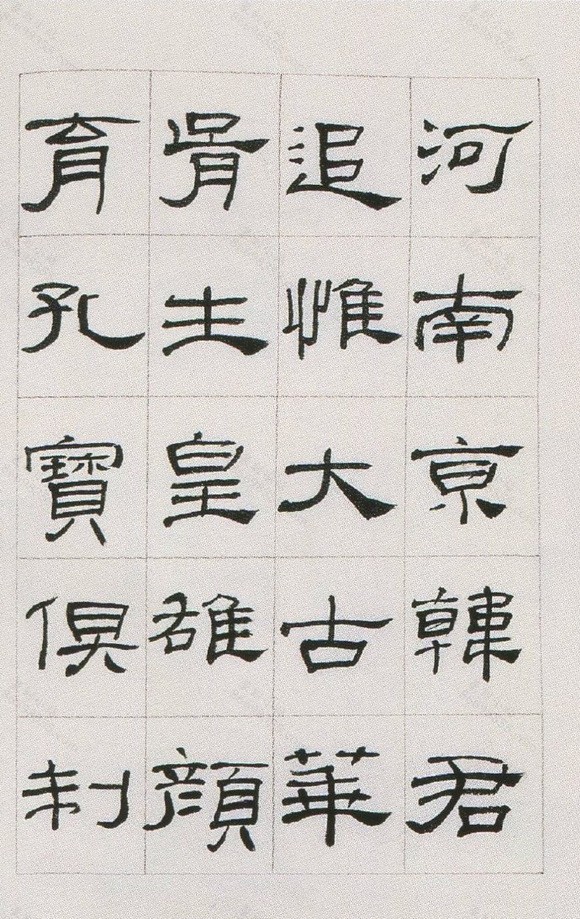 河南亰韓君
追惟大古華
胥生皇雄顏
育孔寶俱制